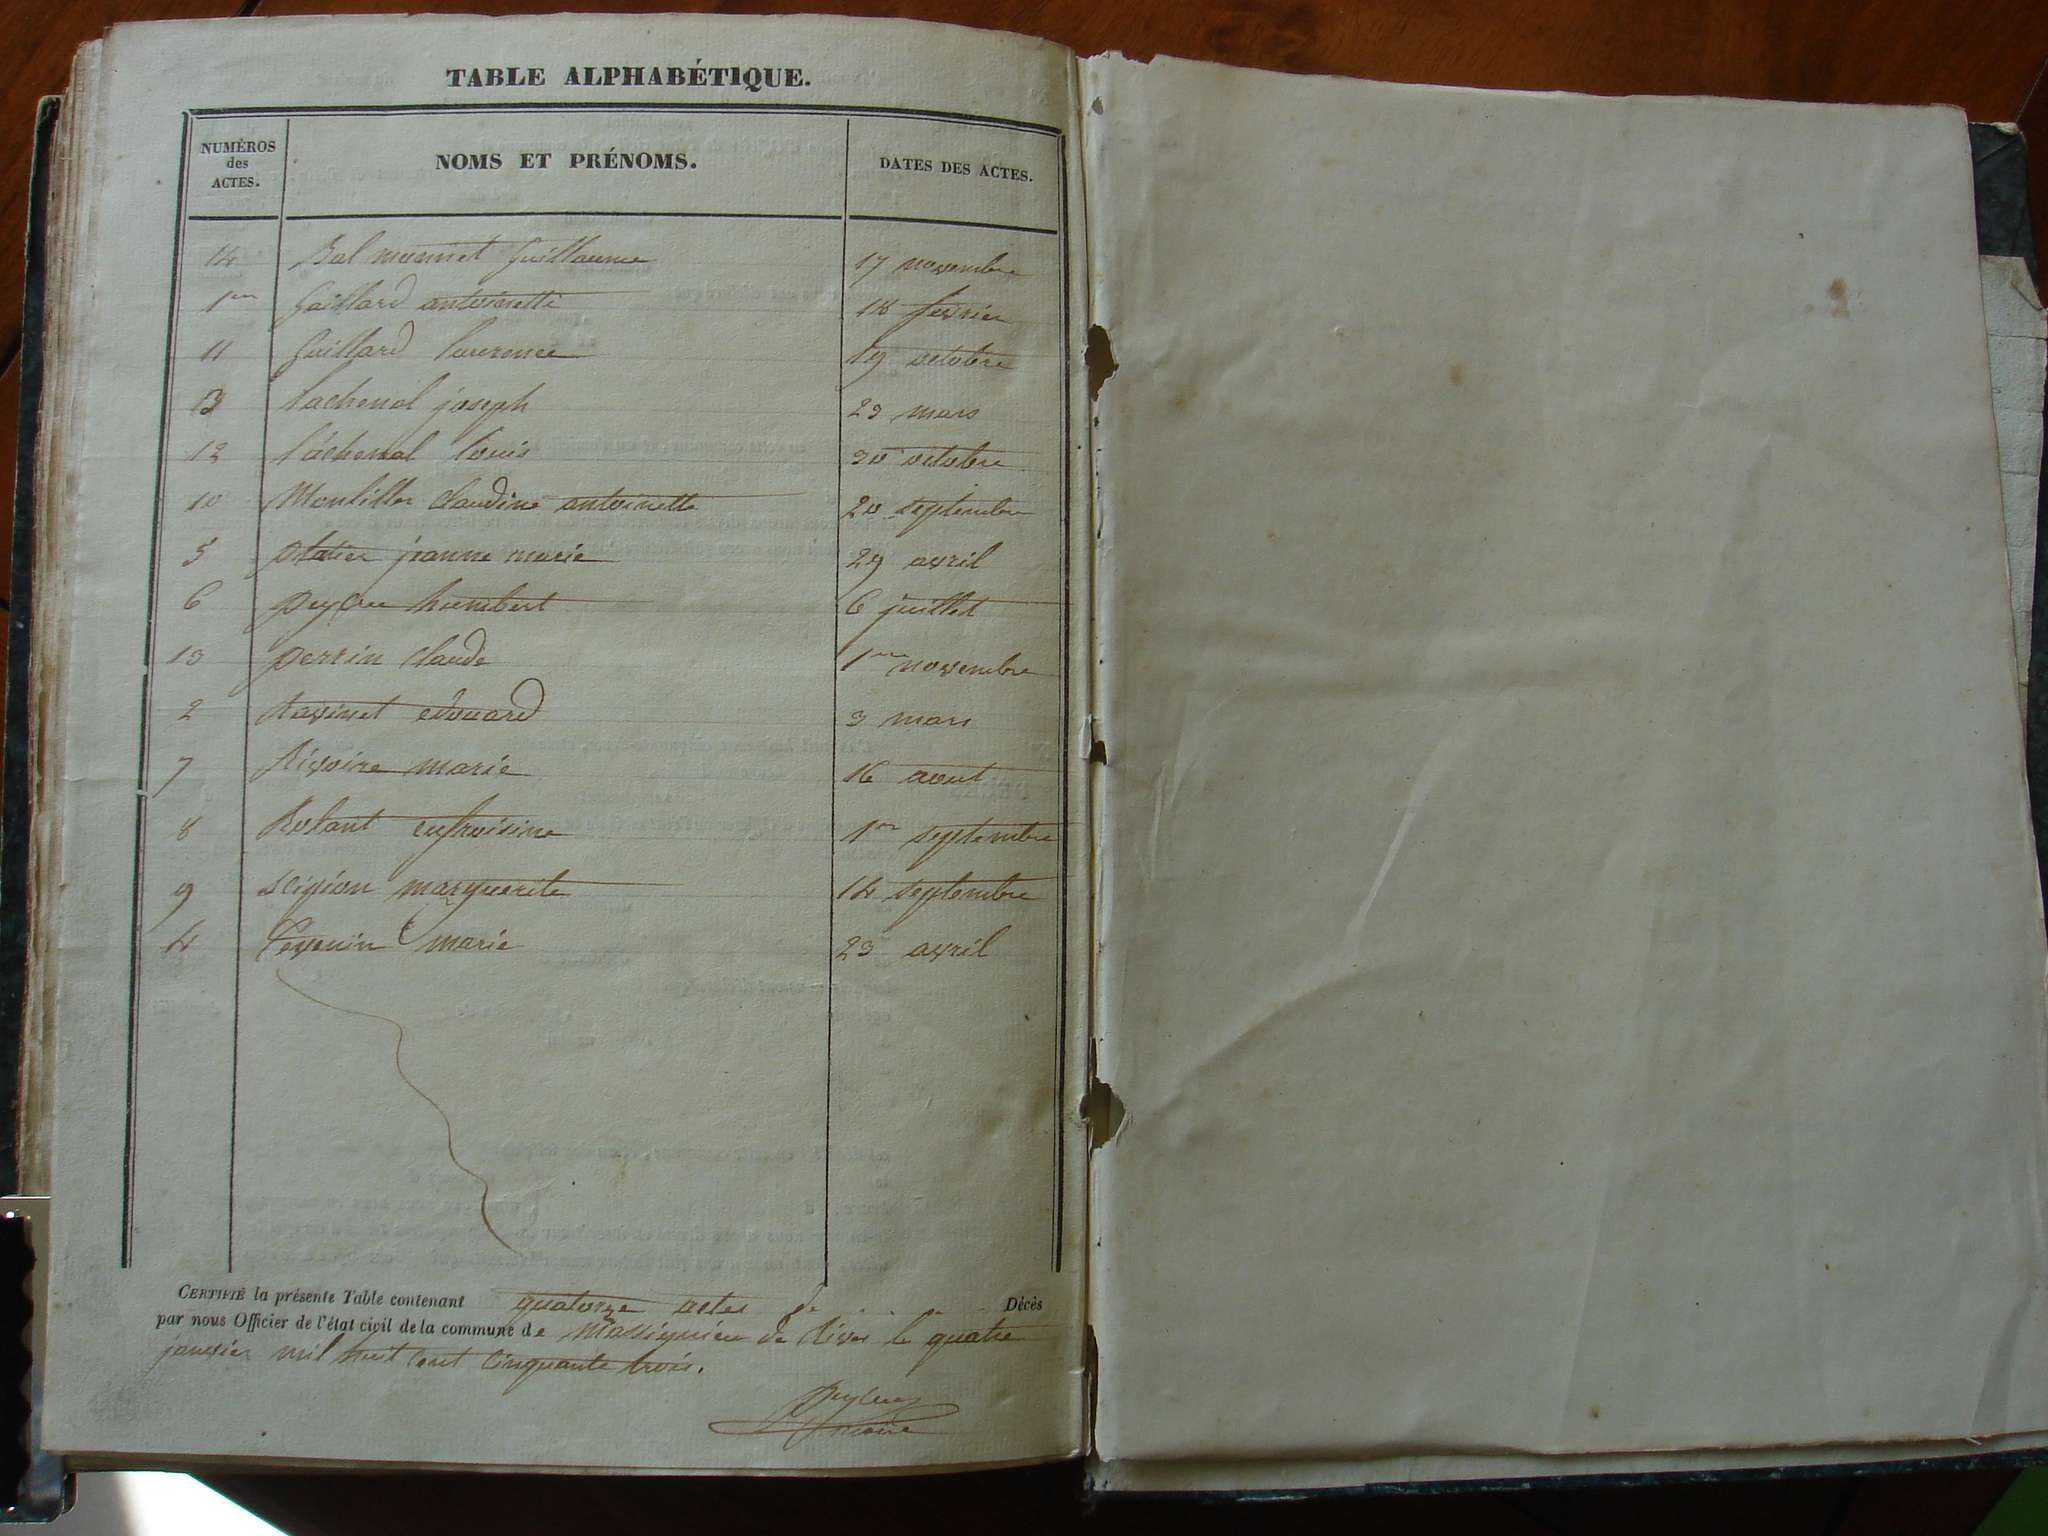 TABLE ALPHABÉTIQUE.
NUMÉROS des ACTES. NOMS ET PRÉNOMS. DATES DES ACTES.
14 Bal monnet Guillaume 17 novembre
1er Gaillard antoinette 18 fevrier
11 Guillard laurence 19 octobre
3 Lachenal joseph 23 mars
12 Lachenal Louis 30 octobre
10 Montillet claudine antoinette 20 septembre
5 jeanne marie 29 avril
6 peyleu humbert 6 juillet
13 perrin claude 1er novembre
2 Ravinet edouard 3 mars
7 Rivoire marie 16 aout
8 Rolant eufroisine 1er septembre
9 scipion marguerite 14 septembre
4 Tevenin marie 23 avril
CERTIFIÉ la présente Table contenant quatorze actes de Décès
par nous Officier de l'état civil de la commune de Massignieu de Rives le quatre
janvier mil huit cent cinquante trois.